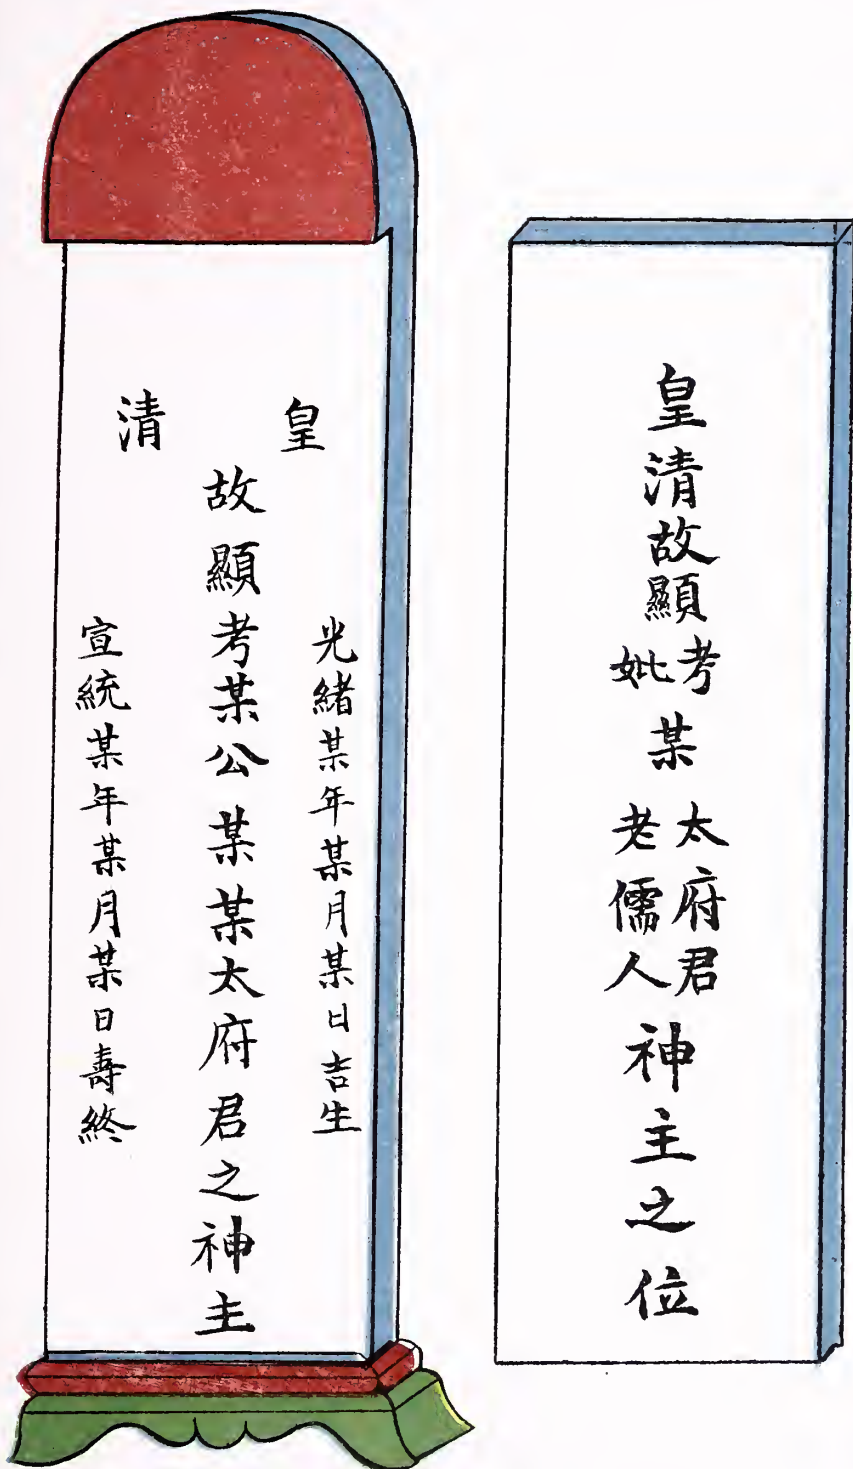 皇清故顯
考
妣
某
太府君
老儒人
神主之位
皇
清
光緒某年某月某日吉生
故顯考某公某某太府君之神主
宣統某年某月某日壽終